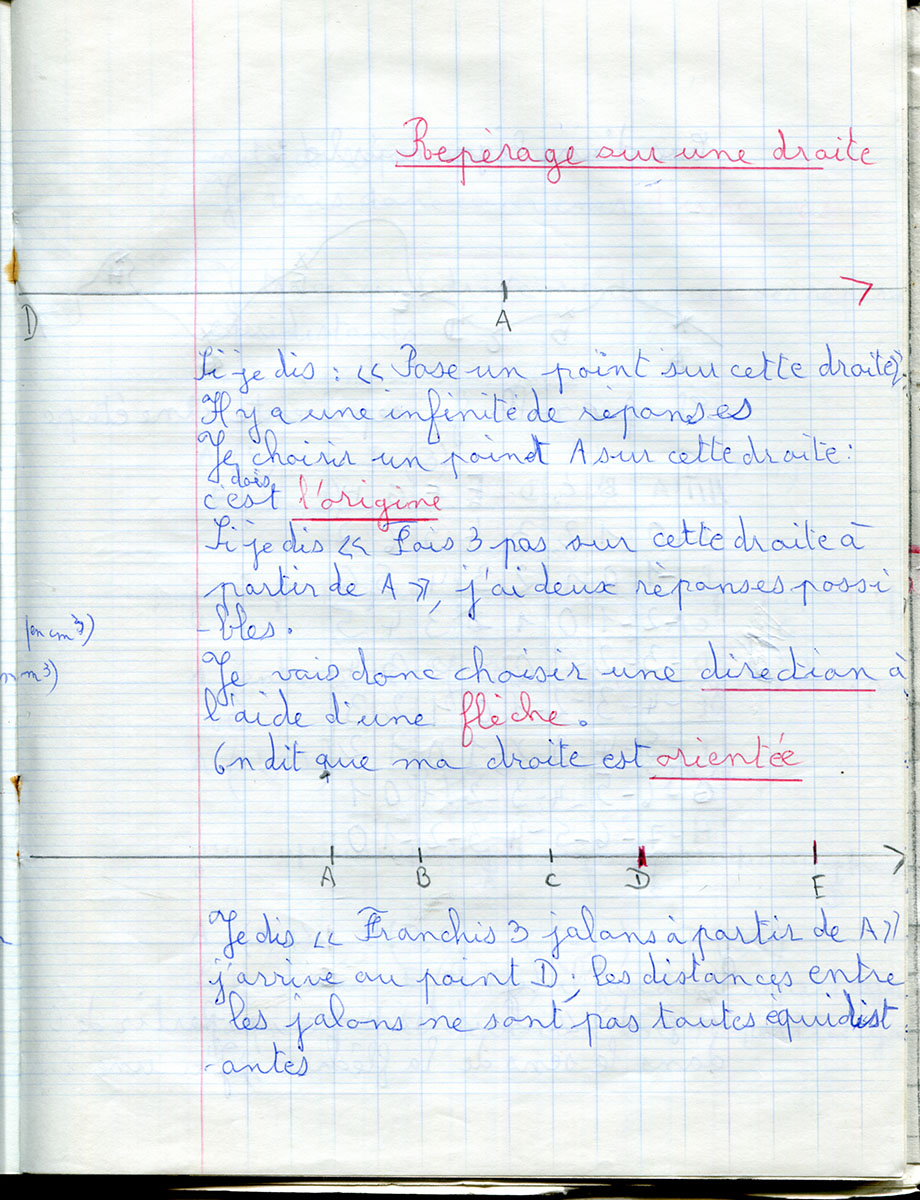 Repèrage sur une droite
D
A
Si je dis : << Pose un point sur cette droite>>
Il y a une infinité de réponses
Je choisir un point A sur cette droite :
dois
c'est l'origine
Si je dis << Fais 3 pas sur cette droite à
partir de A >>, j'ai deux réponses possi
-bles.
(en cm³)
m³)
Je vais donc choisir une direction à
l'aide d'une flèche.
On dit que ma droite est orientée
A B C D E
Je dis << Franchis 3 jalons à partir de A >>
j'arrive au point D ; les distances entre
les jalons ne sont pas toutes équidist
-antes